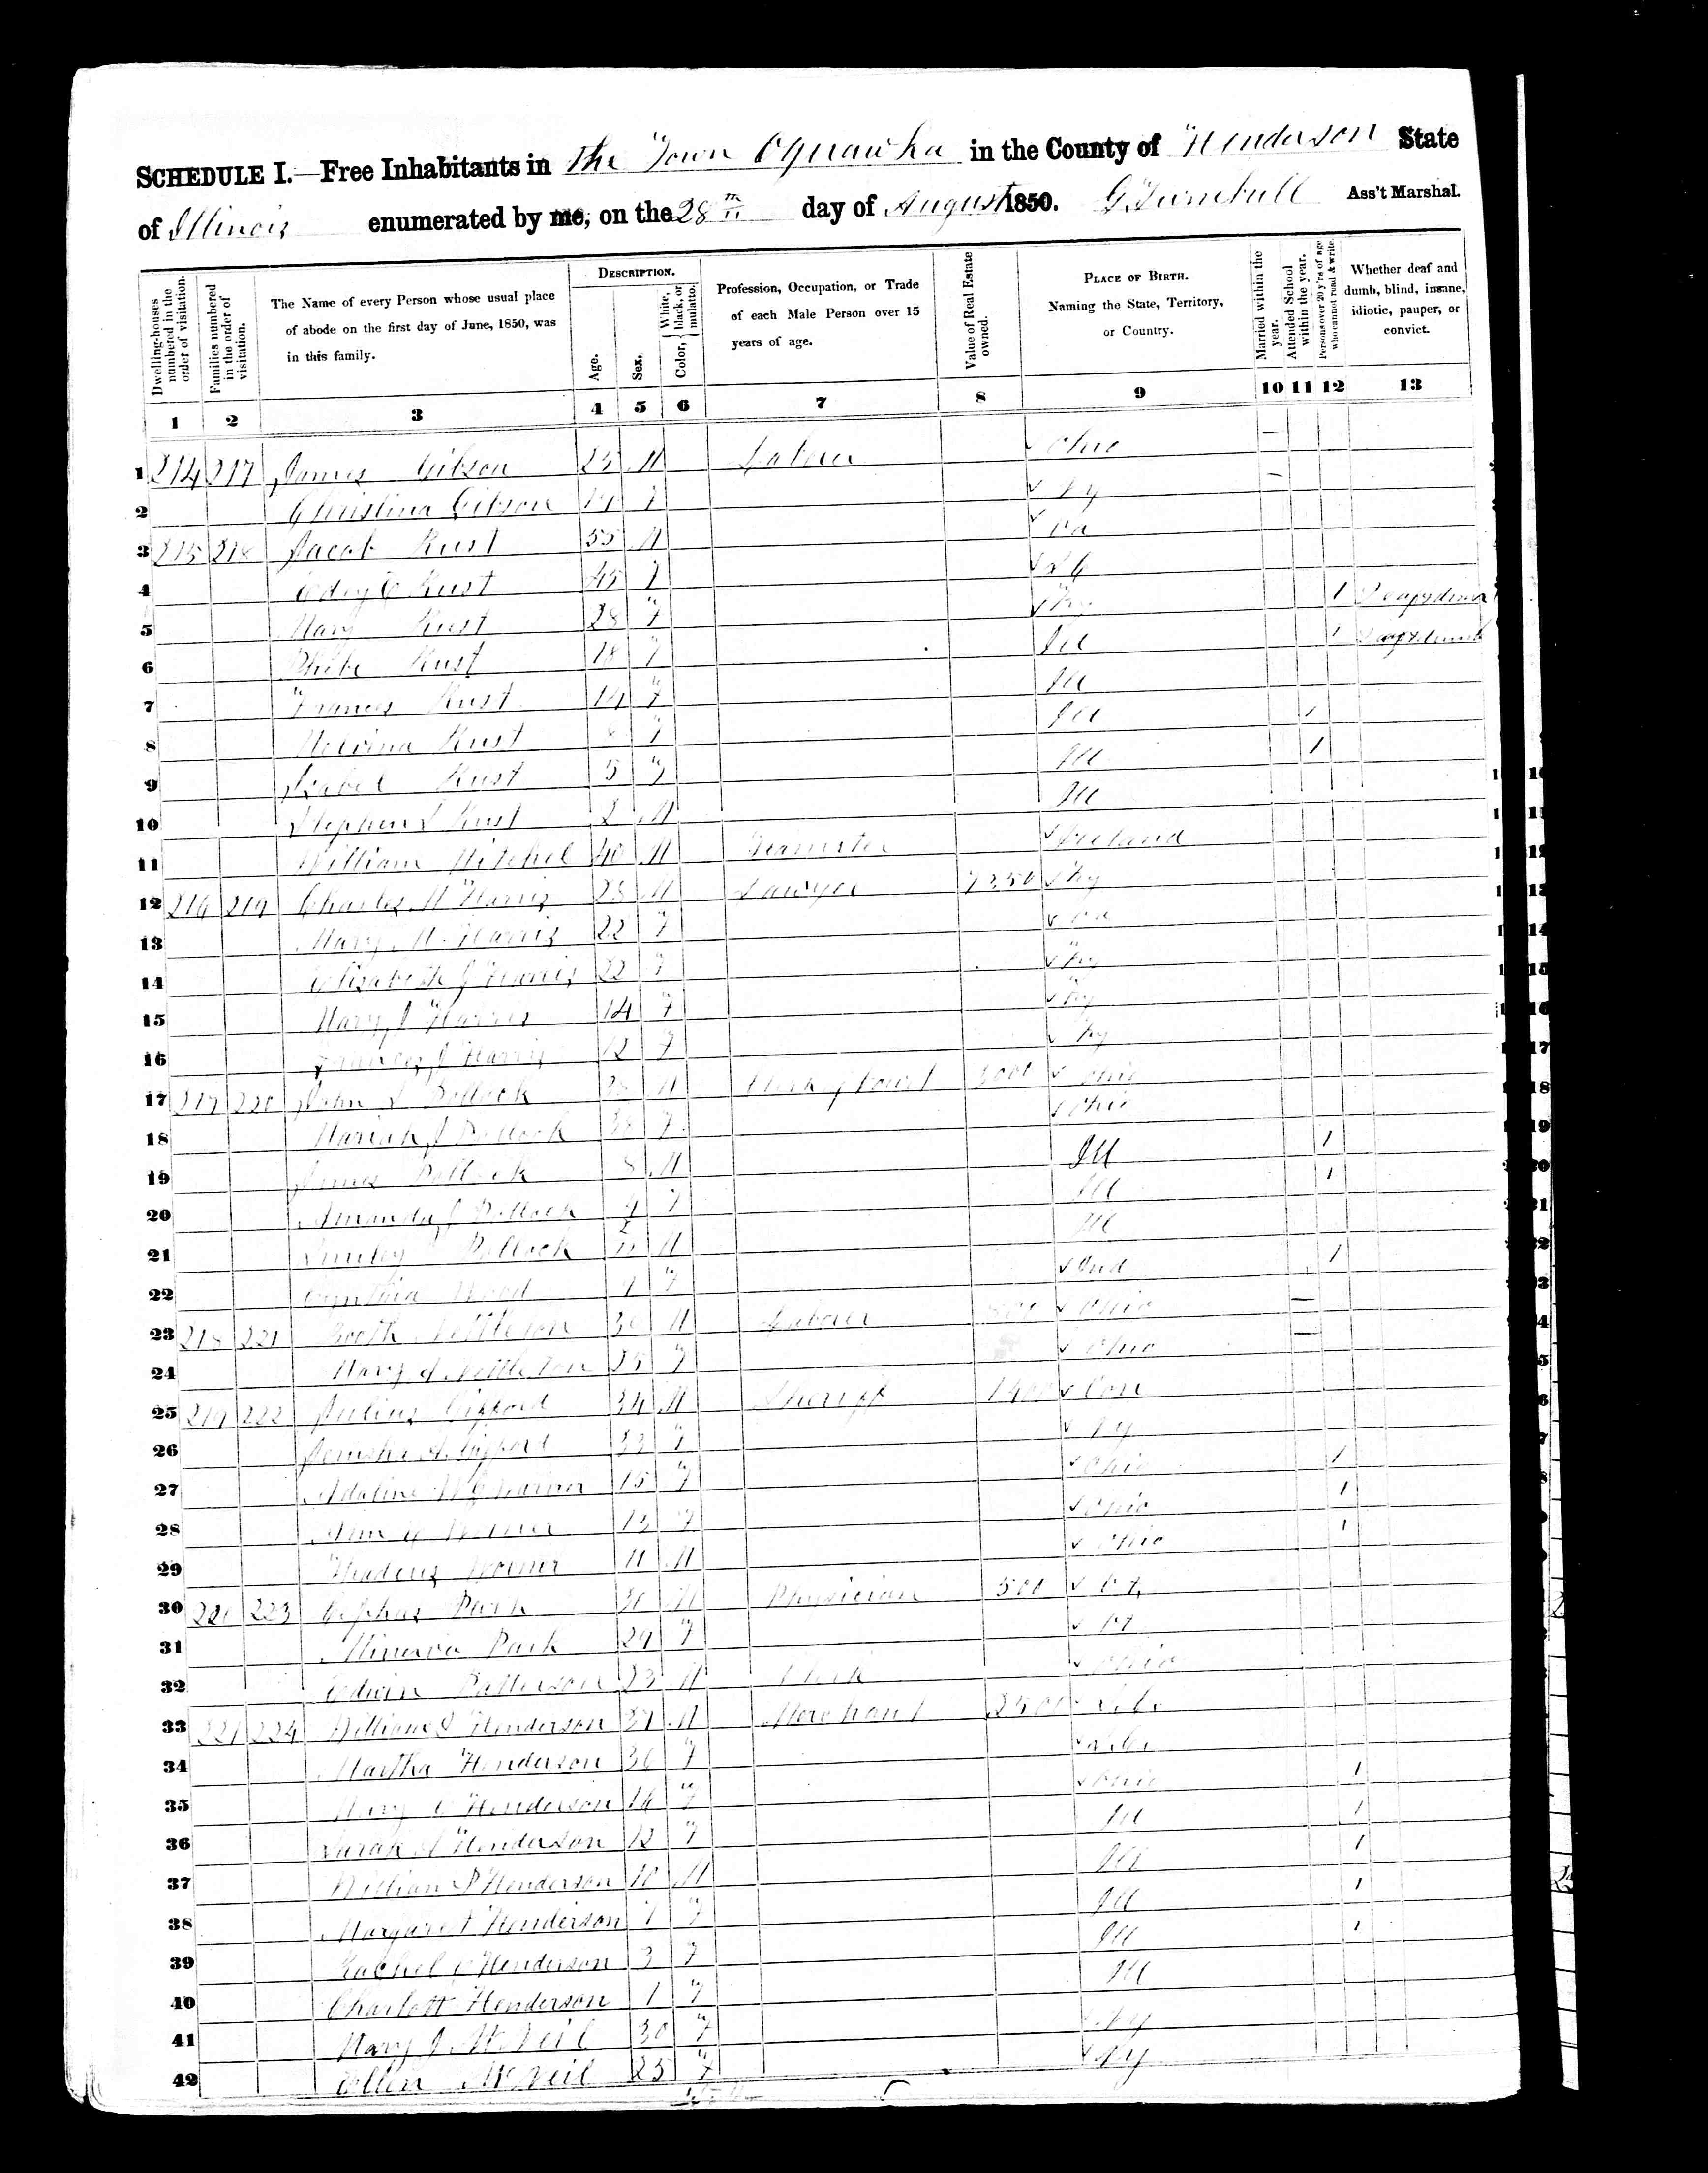 SCHEDULE I.—Free Inhabitants in the Town Oquawka in the County of Henderson State
of Illinois enumerated by me, on the 28th day of August 1850. G Turnbull Ass't Marshal.
Dwelling-houses numbered in the order of visitation.
Families numbered in the order of visitation.
The Name of every Person whose usual place of abode on the first day of June, 1850, was in this family.
DESCRIPTION.
Age.
Sex.
Color, White, black, or mulatto.
Profession, Occupation, or Trade of each Male Person over 15 years of age.
Value of Real Estate owned.
PLACE OF BIRTH. Naming the State, Territory, or Country.
Married within the year.
Attended School within the year.
Persons over 20 y'rs of age who cannot read & write.
Whether deaf and dumb, blind, insane, idiotic, pauper, or convict.
1 2 3 4 5 6 7 8 9 10 11 12 13
1 214 217 James Gibson 25 M Labour Ohio
2 Christina Gibson
3 215 218 Jacob Rust 55 M Va
4 Rust 45 F
5 Mary Rust 28 F Ky 1
6 Phebe Rust 18 F Ill 1
7 Frances Rust 14 F Ill
8 Melvina Rust F Ill 1
9 Isabel Rust 5 F Ill 1
10 Stephen S Rust 2 M Ill
11 William Mitchel 40 M Teamster Ireland
12 216 219 Charles M Harris 28 M Lawyer Ky
13 Mary M. Harris 22 F
14 Elizabeth J Harris 22 F Ky
15 Mary J Harris 14 F Ky
16 Frances J Harris 12 F Ky
17 217 220 John S Pollock M Clerk of Court 3000 Ohio
18 Mariah J Pollock F Ohio
19 James Pollock 8 M Ill 1
20 Amanda J Pollock F Ill 1
21 Smiley Pollock M Ill
22 Cynthia Wood 9 F Ind 1
23 218 221 Booth Nettleton 30 M Labour Ohio
24 Mary A Nettleton 25 F Ohio
25 219 222 Julius Gifford 34 M Sheriff Con
26 Jerusha A. Gifford 33 F
27 Adaline 15 F Ohio 1
28 13 F Ohio 1
29 11 M Ohio 1
30 220 223 Cephas Park 30 M Physician 500 Vt
31 Minerva Park 29 F Vt
32 Edwin Patterson 23 M Clerk Ohio
33 221 224 William D Henderson 37 M Merchant 2500
34 Martha Henderson 36 F
35 Mary E Henderson 14 F Ohio 1
36 Sarah A Henderson 12 F Ill 1
37 William P Henderson 10 M Ill 1
38 Margaret Henderson 7 F Ill 1
39 Rachel Henderson 3 F Ill 1
40 Charlott Henderson 1 F Ill
41 Mary J McNeil 30 F
42 Ellen McNeil 25 F